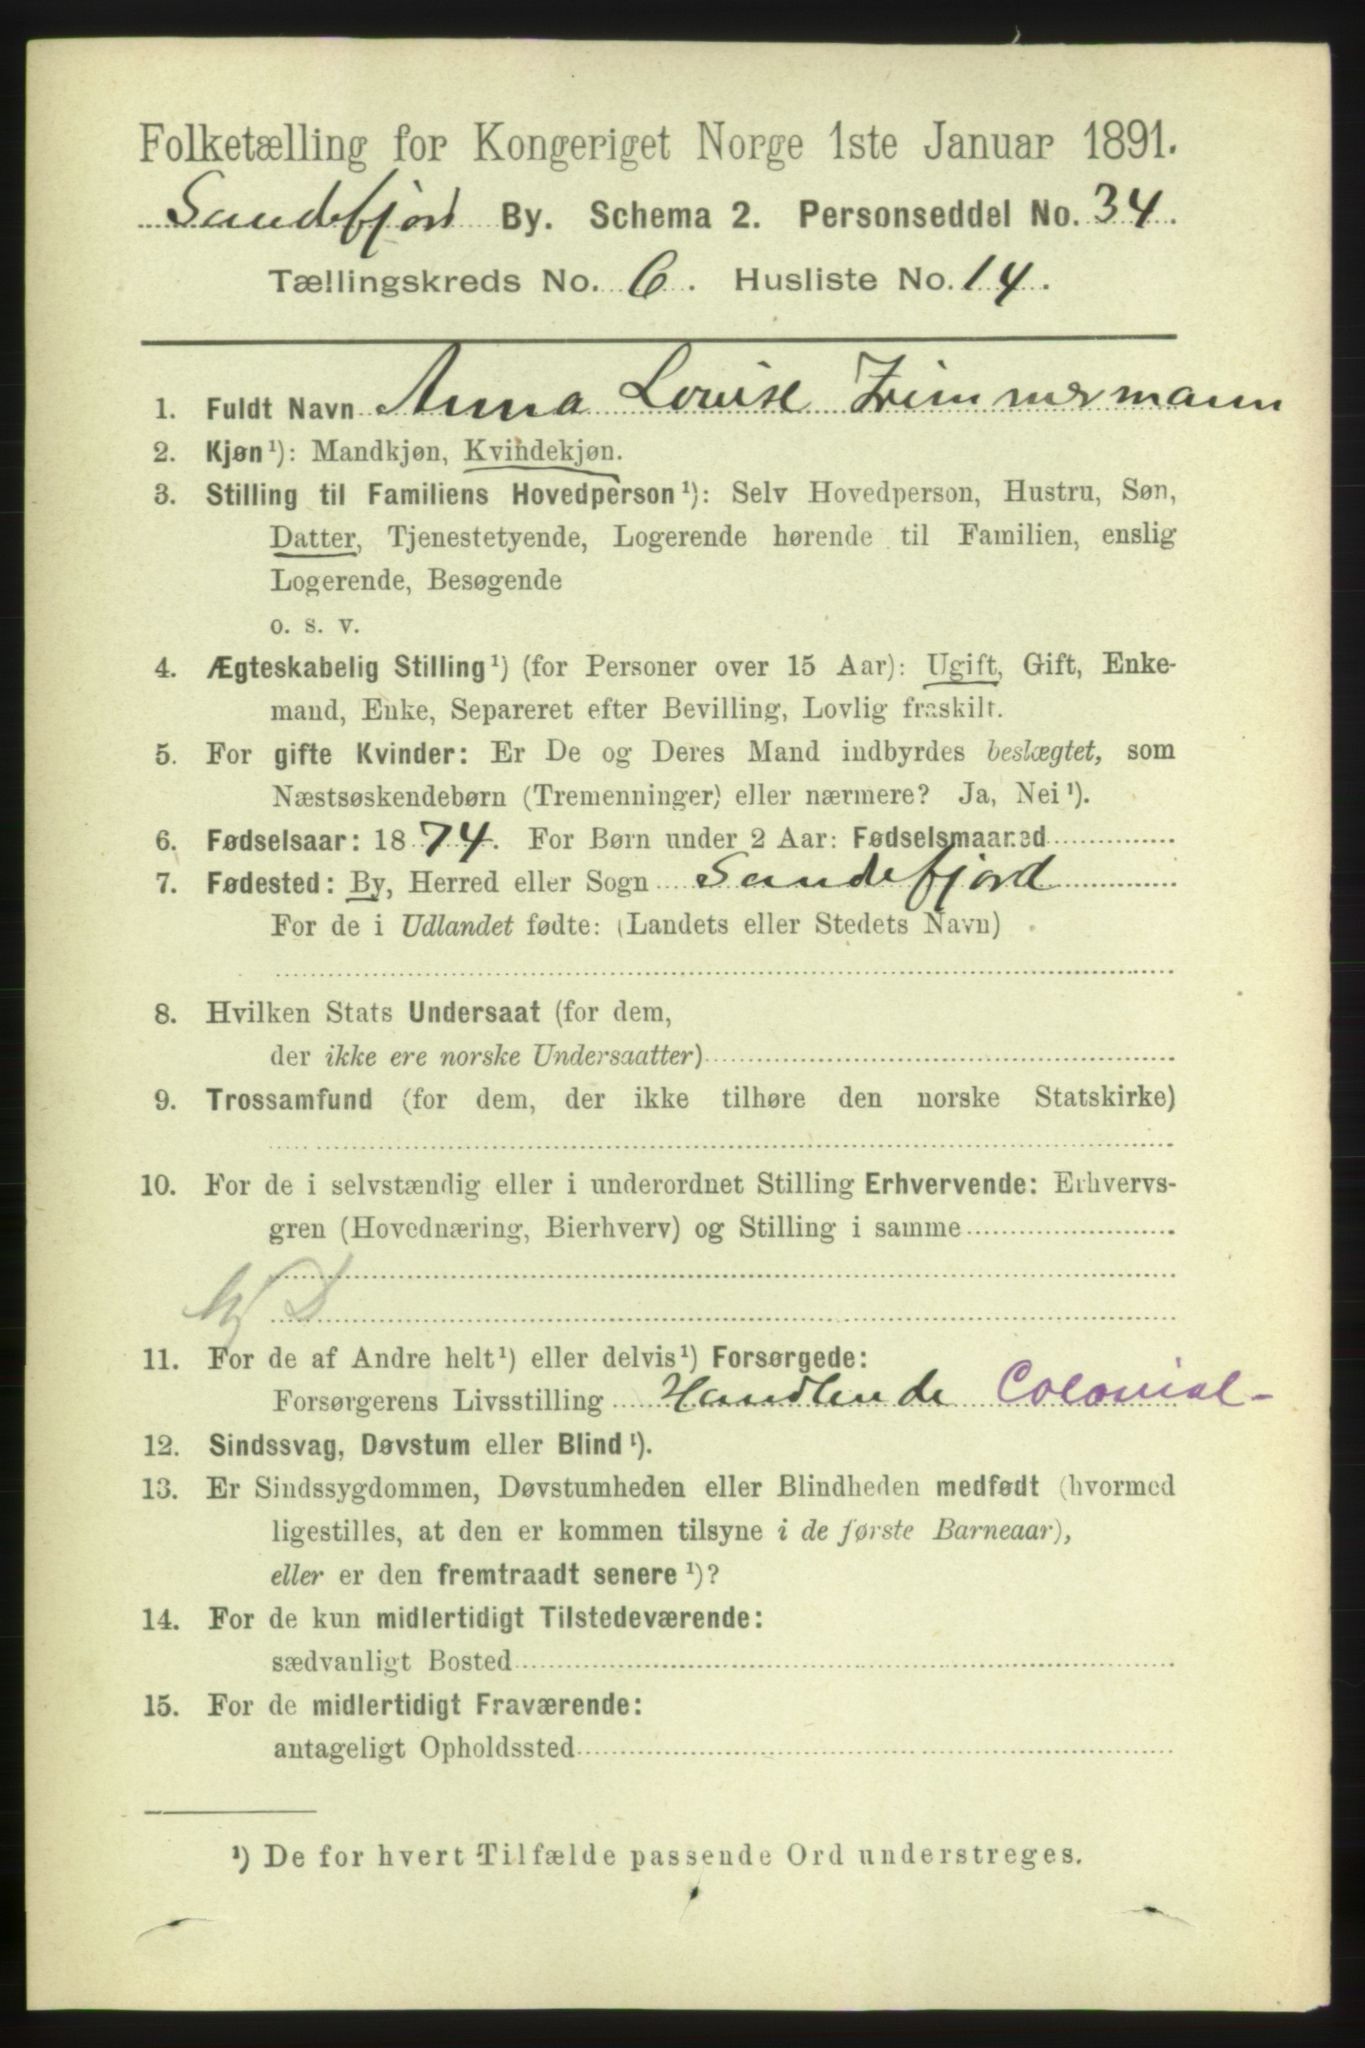 Folketælling for Kongeriget Norge 1ste Januar 1891.
Sandefjord By. Schema 2. Personseddel No. 34.
Tællingskreds No. 6. Husliste No. 14.
1. Fuldt Navn Anna Louise Zimmermann
2. Kjøn¹): Mandkjøn, Kvindekjøn.
3. Stilling til Familiens Hovedperson¹): Selv Hovedperson, Hustru, Søn,
Datter, Tjenestetyende, Logerende hørende til Familien, enslig
Logerende, Besøgende
o. s. v.
4. Ægteskabelig Stilling¹) (for Personer over 15 Aar): Ugift, Gift, Enke-
mand, Enke, Separeret efter Bevilling, Lovlig fraskilt.
5. For gifte Kvinder: Er De og Deres Mand indbyrdes beslægtet, som
Næstsøskendebørn (Tremenninger) eller nærmere? Ja, Nei¹).
6. Fødselsaar: 1874. For Børn under 2 Aar: Fødselsmaaned
7. Fødested: By, Herred eller Sogn Sandefjord
For de i Udlandet fødte: (Landets eller Stedets Navn)
8. Hvilken Stats Undersaat (for dem,
der ikke ere norske Undersaatter)
9. Trossamfund (for dem, der ikke tilhøre den norske Statskirke)
10. For de i selvstændig eller i underordnet Stilling Erhvervende: Erhvervs-
gren (Hovednæring, Bierhverv) og Stilling i samme
11. For de af Andre helt¹) eller delvis¹) Forsørgede:
Forsørgerens Livsstilling Handlende Colonial-
12. Sindssvag, Døvstum eller Blind¹).
13. Er Sindssygdommen, Døvstumheden eller Blindheden medfødt (hvormed
ligestilles, at den er kommen tilsyne i de første Barneaar),
eller er den fremtraadt senere¹)?
14. For de kun midlertidigt Tilstedeværende:
sædvanligt Bosted
15. For de midlertidigt Fraværende:
antageligt Opholdssted
¹) De for hvert Tilfælde passende Ord understreges.